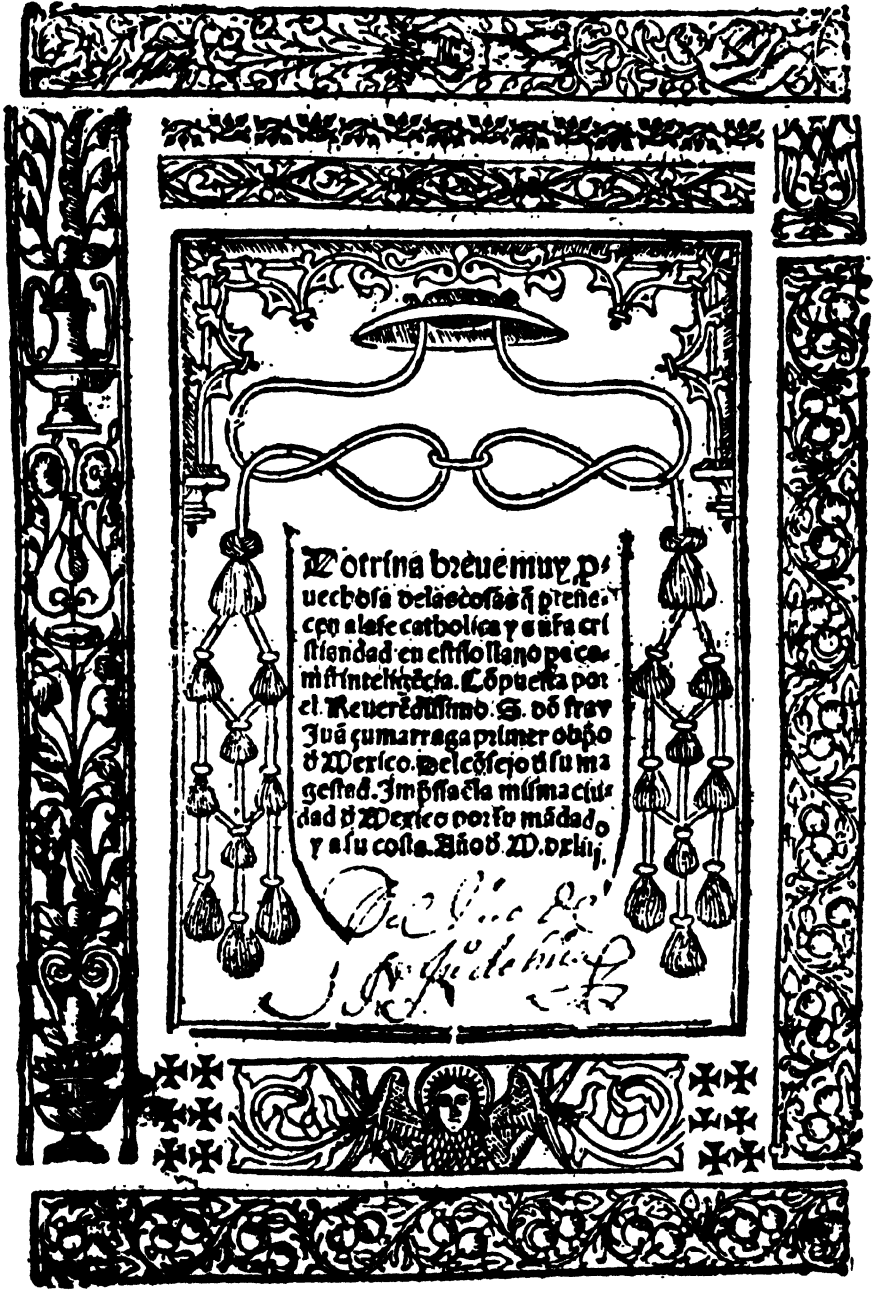 Dotrina breue muy ꝓ-
uechosa delas cosas q̃ ꝑtene-
cen ala fe catholica y a nr̃a cri
stiandad en estilo llano pa co-
mũ inteligẽcia. Cõpuesta por
el. Reuerẽdissimo. S. dõ fray
Juã çumarraga primer obp̃o
d̃ Mexico. Del cõsejo d̃ su ma
gestad. Imp̃ssa ẽla misma ciu-
dad d̃ Mexico por su mãdado
y a su costa. Año d̃. M. dxliij.